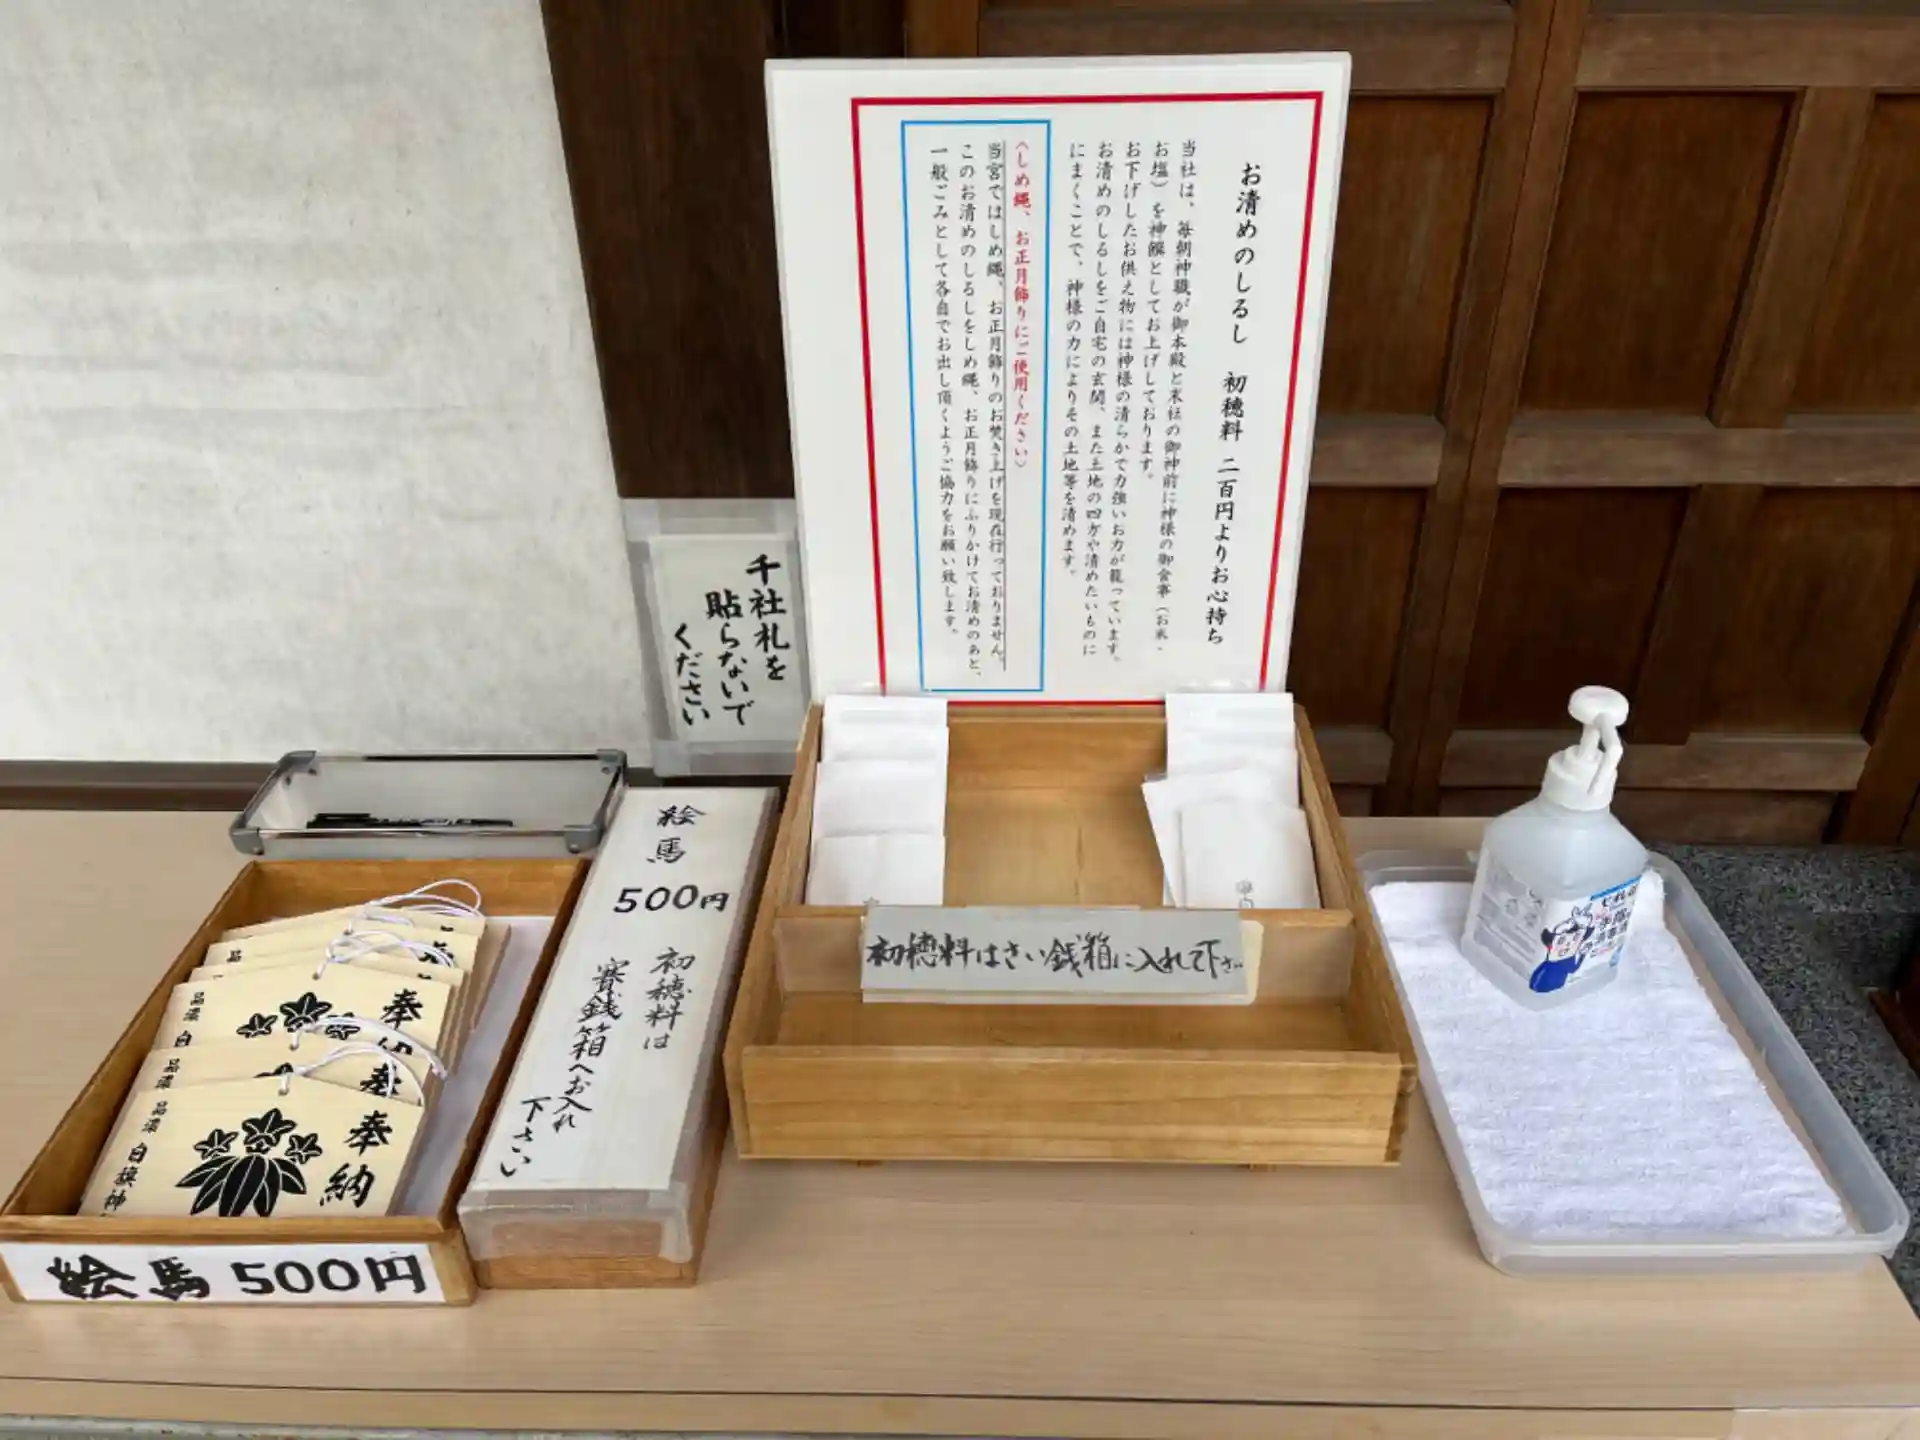 お清めのしるし 初穂料 二百円よりお心持ち
当社は、毎朝神職が御本殿と末社の御神前に神様の御食事（お米・
お塩）を神饌としてお上げしております。
お下げしたお供え物には神様の清らかで力強いお力が籠っています。
お清めのしるしをご自宅の玄関、また土地の四方や清めたいものに
にまくことで、神様の力によりその土地等を清めます。
〈しめ縄、お正月飾りにご使用ください〉
当宮ではしめ縄、お正月飾りのお焚き上げを現在行っておりません。
このお清めのしるしをしめ縄、お正月飾りにふりかけてお清めのあと、
一般ごみとして各自でお出し頂くようご協力をお願い致します。
千社札を
貼らないで
ください
絵馬
500円
初穂料は
賽銭箱へお入れ
下さい
初穂料はさい銭箱に入れて下さい
奉納
品濃 白旗神
奉
品濃
奉納
品濃 白
絵馬 500円